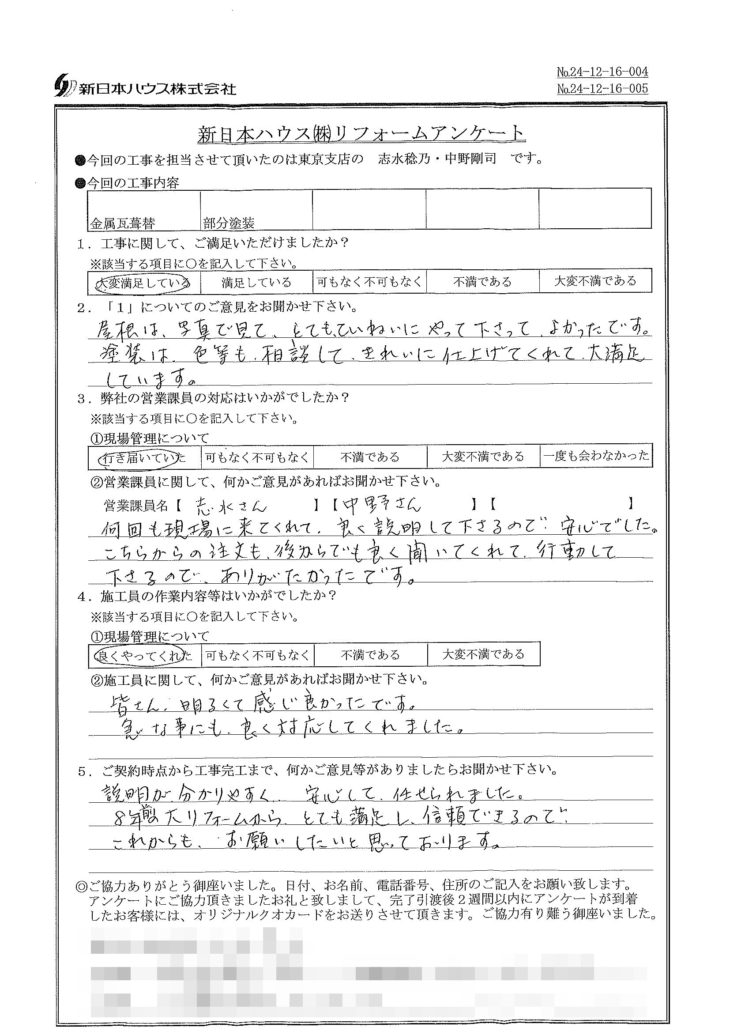 №24-12-16-004
新日本ハウス株式会社
№24-12-16-005
新日本ハウス㈱リフォームアンケート
●今回の工事を担当させて頂いたのは東京支店の 志水稔乃・中野剛司 です。
●今回の工事内容
金属瓦葺替 部分塗装
1．工事に関して、ご満足いただけましたか？
※該当する項目に○を記入して下さい。
大変満足している 満足している 可もなく不可もなく 不満である 大変不満である
2．「1」についてのご意見をお聞かせ下さい。
屋根は、写真で見て、とてもていねいにやって下さって、よかったです。
塗装は、色等も、相談して、きれいに仕上げてくれて、大満足
しています。
3．弊社の営業課員の対応はいかがでしたか？
※該当する項目に○を記入して下さい。
①現場管理について
行き届いていた 可もなく不可もなく 不満である 大変不満である 一度も会わなかった
②営業課員に関して、何かご意見があればお聞かせ下さい。
営業課員名【 志水さん 】【中野さん 】【 】
何回も現場に来てくれて、良く説明して下さるので、安心でした。
こちらからの注文も、後からでも良く聞いてくれて、行動して
下さるので、ありがたかったです。
4．施工員の作業内容等はいかがでしたか？
※該当する項目に○を記入して下さい。
①現場管理について
良くやってくれた 可もなく不可もなく 不満である 大変不満である
②施工員に関して、何かご意見があればお聞かせ下さい。
皆さん、明るくて感じ良かったです。
急な事にも、良く対応してくれました。
5．ご契約時点から工事完工まで、何かご意見等がありましたらお聞かせ下さい。
説明が、分かりやすく、安心して、任せられました。
8年前大リフォームから、とても満足し、信頼できるので、
これからも、お願いしたいと思っております。
◎ご協力ありがとう御座いました。日付、お名前、電話番号、住所のご記入をお願い致します。
アンケートにご協力頂きましたお礼と致しまして、完了引渡後2週間以内にアンケートが到着
したお客様には、オリジナルクオカードをお送りさせて頂きます。ご協力有り難う御座いました。